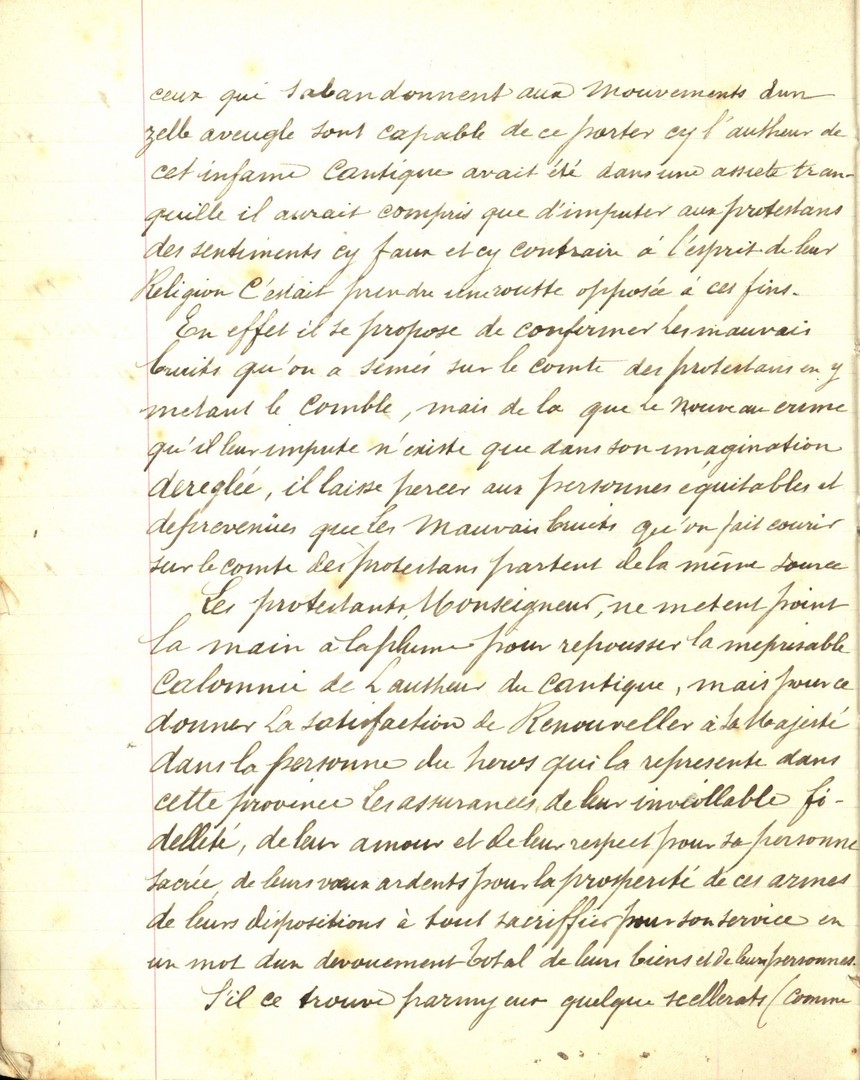 ceux qui sabandonnent aux mouvements dun
zelle aveugle sont capable de ce porter cy l'autheur de
cet infame Cantique avait été dans une assiete tran-
quille il aurait compris que d'imputer aux protestans
des sentiments cy faux et cy contraire à l'esprit de leur
Religion C'estait prendre une routte opposée à ces fins.
En effet il se propose de confirmer les mauvais
bruits qu'on a semés sur le comte des protestans en y
metant le Comble, mais de la que le nouveau crime
qu'il leur impute n'existe que dans son imagination
dereglée, il laisse percer aux personnes équitables et
deprevenües que les mauvais bruits qu'on fait courir
sur le comte des protestans partent de la même source
Les protestants, Monseigneur, ne metent point
la main à la plume pour repousser la meprisable
Calomnie de L'autheur du Cantique, mais pour ce
donner la satisfaction de Renouveller à Sa Majesté
dans la personne du heros qui la represente dans
cette province les assurances de leur inviollable fi-
dellité, de leur amour et de leur respect pour sa personne
sacrée, de leurs vœux ardents pour la prosperité de ces armes
de leurs dispositions à tout sacriffier pour son service en
un mot dun devouement total de leurs biens et de leurs personnes.
S'il ce trouve parmy eux quelque scellerats (comme